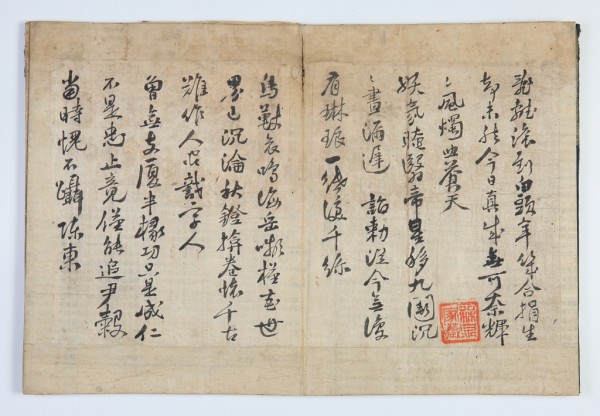 亂離滾到白頭年幾合捐生
却未然今日真成無可奈輝
〻風燭照蒼天
妖氛晻翳帝星移九闕沉
〻晝漏遲詔勅從今無復
有琳琅一紙淚千絲
鳥獸哀鳴海岳嚬槿花世
界已沉淪秋鐙揜卷懷千古
難作人間識字人
曾無支廈半椽功只是成仁
不是忠止竟僅能追尹穀
當時愧不躡陳東